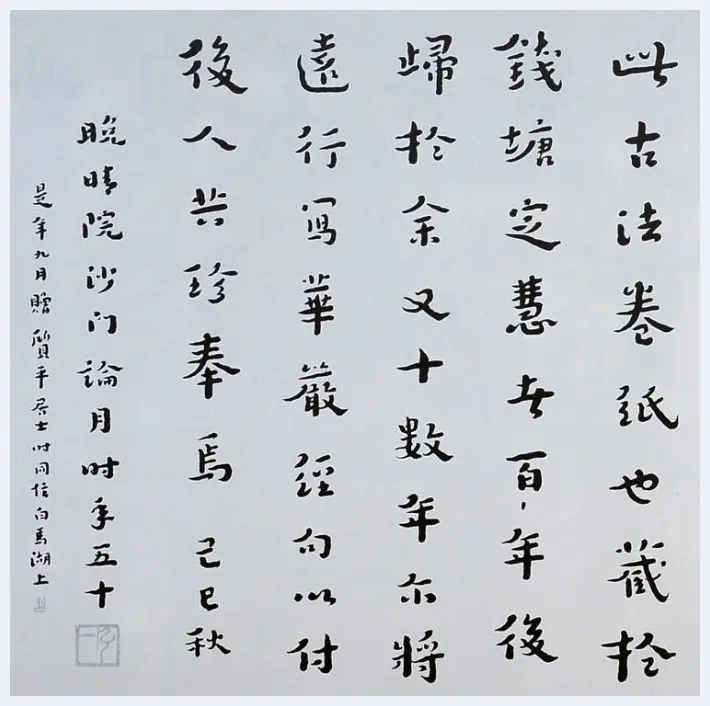 此古法卷紙也藏於
錢塘定慧者百年後
歸於余又十數年尔將
遠行寫華嚴經句以付
後人共珍奉焉 己巳秋
晚晴院沙门論月时年五十
是年九月贈質平居士时同住白馬湖上